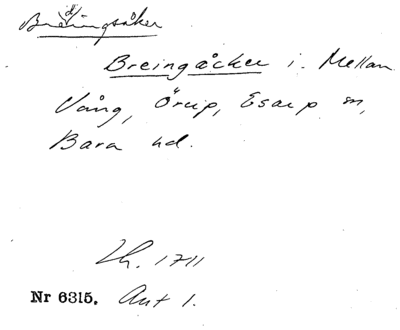 Bredingsåker
Breingåcker i. Mellan
Vång, Örup, Esarp sn,
Bara hd.
Lh. 1711
Nr 6315. Ant 1.